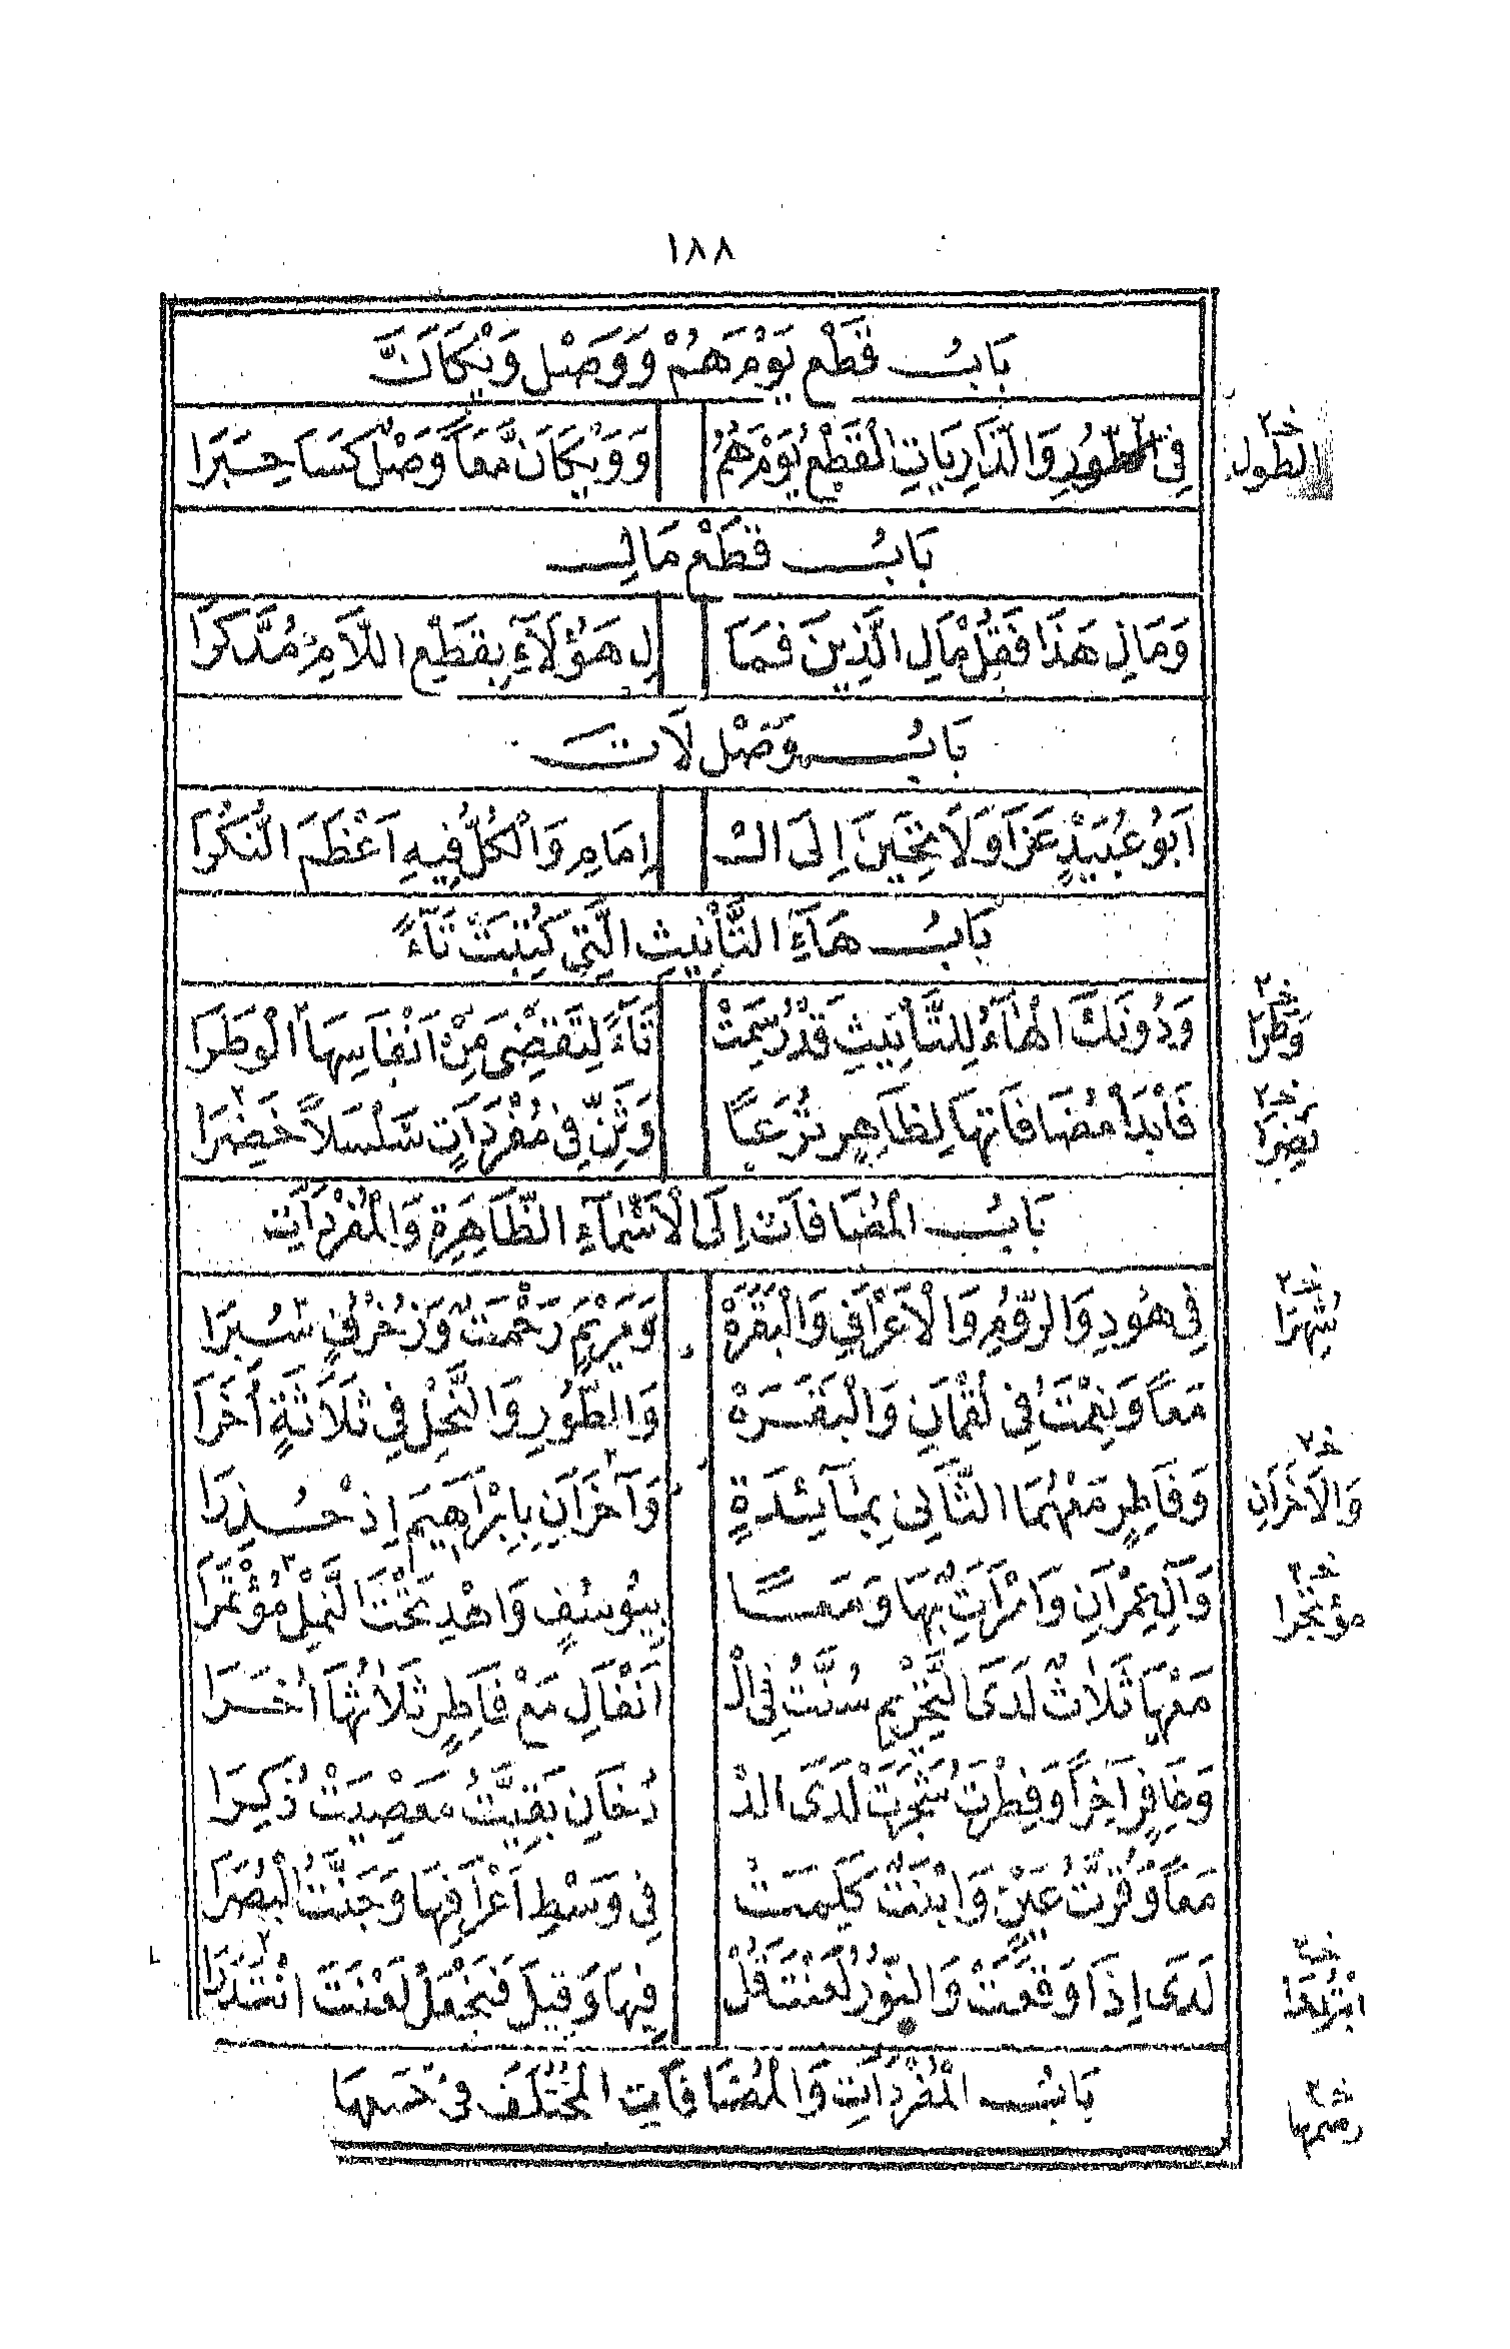 ١٨٨
بَابُ قَطْعِ يَوْمَ هُمْ وَوَصْلِ وَيْكَأَنَّ
فِي الطَّوْلِ وَالذَّارِيَاتِ الْقَطْعُ يَوْمَ هُمُ وَوَيْكَأَنَّ مَعًا وَصْلٌ كَسَا حِبَرَا
خ٢ الطول
بَابُ قَطْعِ مَالِ
وَمَالِ هَذَا فَقُلْ مَالِ الَّذِينَ فَمَا لِ هَؤُلَآءِ بِقَطْعِ اللَّامِ مُدَّكِرَا
بَابُ وَصْلِ لَاتَ
اَبُو عُبَيْدٍ عَزَا وَلَا تَحِينَ اِلَى الْـ اِمَامِ وَالْكُلُّ فِيهِ اَعْظَمَ النُّكُرَا
بَابُ هَآءِ التَّأْنِيثِ الَّتِي كُتِبَتْ تَآءً
وَدُونَكَ الْهَآءَ لِلتَّأْنِيثِ قَدْ رُسِمَتْ تَآءً لِتَقْضِيَ مِنْ اَنْفَاسِهَا الْوَطَرَا
خ٢ وَطَرَا
فَابْدَأْ مُضَافَاتِهَا لِظَاهِرٍ تُرَعًا وَثَنِّ فِي مُفْرَدَاتٍ سَلْسَلًا خَضِرَا
خ٢ نَضِرَا
بَابُ الْمُضَافَاتِ اِلَى الْاَسْمَآءِ الظَّاهِرَةِ وَالْمُفْرَدَاتِ
فِي هُودِ وَالرُّومِ وَالْاَعْرَافِ وَالْبَقَرَهْ وَمَرْيَمٍ رَحْمَتٌ وَزُخْرُفٍ سُبِرَا
خ٢ شُهِرَا
مَعًا وَنِعْمَتُ فِي لُقْمَانَ وَالْبَقَرَهْ وَالطُّورِ وَالنَّحْلِ فِي ثَلَاثَةٍ أُخَرَا
وَفَاطِرٍ مَعْهُمَا الثَّانِي بِمَآئِدَةٍ وَآخَرَانِ بِاِبْرَاهِيمَ اِذْ حُذِرَا
خ٢ وَالْاَخَرَانِ
وَآلِ عِمْرَانَ وَامْرَاَتٌ بِهَا وَمَعًا بِيُوسُفٍ وَاهْدِ تَحْتَ النَّمْلِ مُؤْتَمِرَا
خ٢ مؤتجرا
مَعْهَا ثَلَاثٌ لَدَى التَّحْرِيمِ سُنَّتُ فِي الْـ اَنْفَالِ مَعْ فَاطِرٍ ثَلَاثُهَا اُخَرَا
وَغَافِرٍ آخِرًا وَفِطْرَتُ شَجَرَتْ لَدَى الدْ دُخَانِ بَقِيَّتُ مَعْصِيَتْ ذُكِرَا
مَعًا وَقُرَّتُ عَيْنٍ وَابْنَتٌ كَلِمَتْ فِي وَسْطِ اَعْرَافِهَا وَجَنَّتُ الْبُصَرَا
لَدَى اِذَا وَقَعَتْ وَالنُّورُ لَعْنَتَ قُلْ فِيهَا وَقَبْلَ فَنَجْعَلْ لَعْنَتَ ابْتُدِرَا
بَابُ الْمُفْرَدَاتِ وَالْمُضَافَاتِ الْمُخْتَلَفِ فِي جَمْعِهَا
خ٢ رسمها